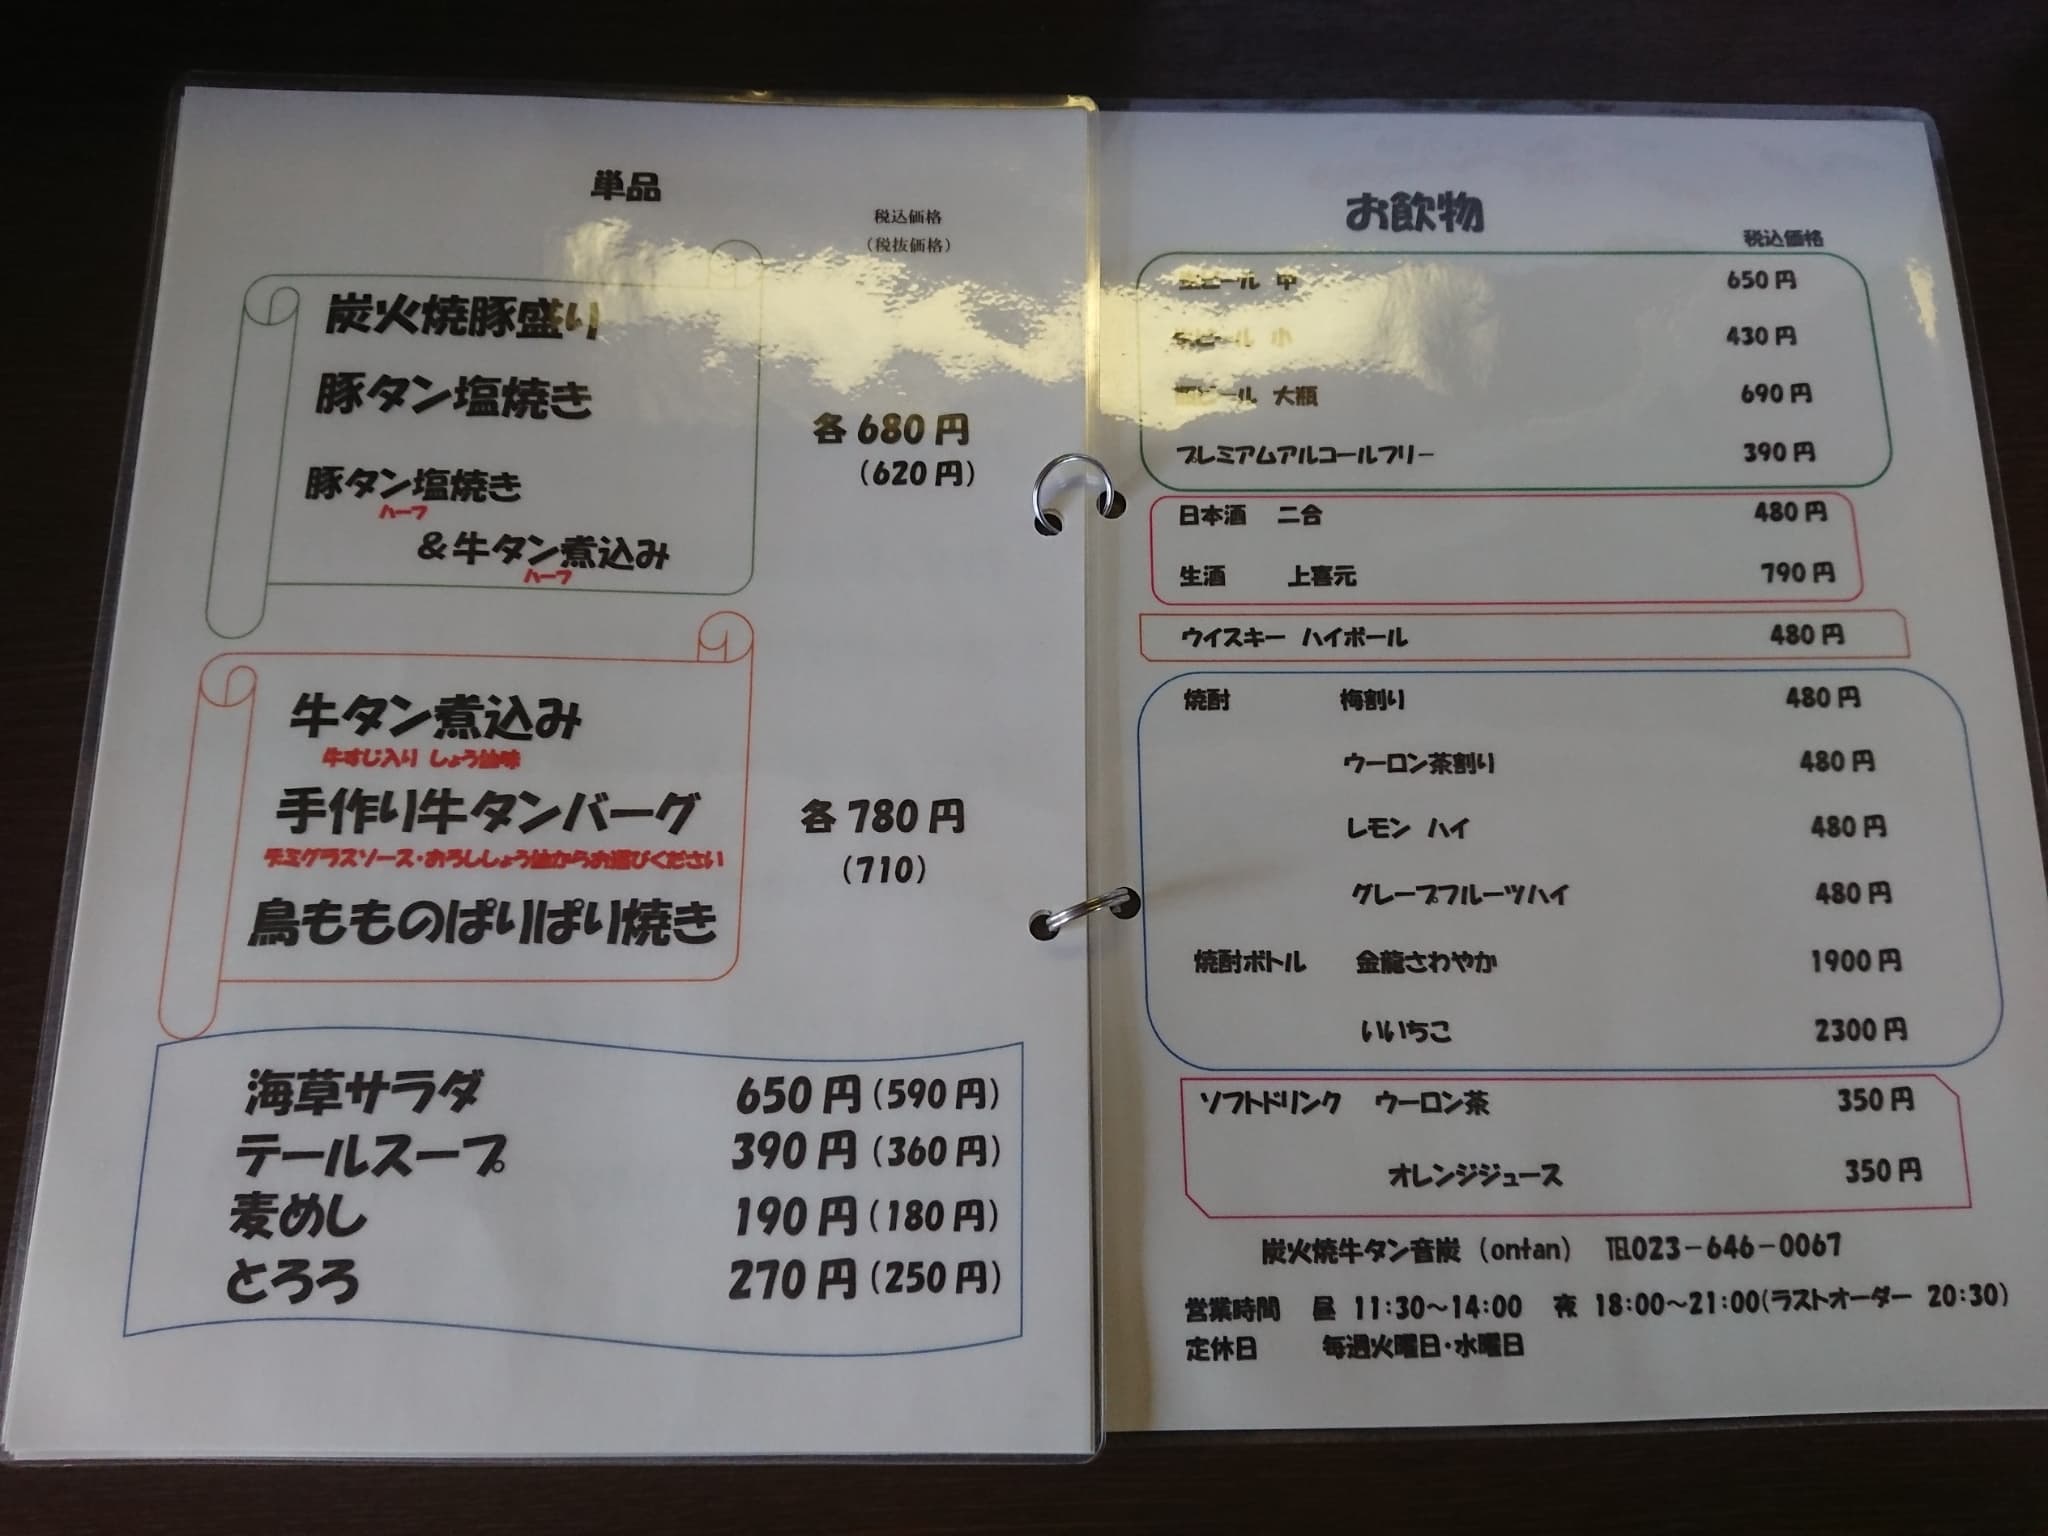 単品
税込価格
(税抜価格)
炭火焼豚盛り
豚タン塩焼き
豚タン塩焼き
ハーフ
&牛タン煮込み
ハーフ
各680円
(620円)
牛タン煮込み
牛すじ入り しょう油味
手作り牛タンバーグ
デミグラスソース・おろししょう油からお選びください
鳥もものぱりぱり焼き
各780円
(710)
海草サラダ 650円(590円)
テールスープ 390円(360円)
麦めし 190円(180円)
とろろ 270円(250円)
お飲物
税込価格
生ビール 中 650円
生ビール 小 430円
瓶ビール 大瓶 690円
プレミアムアルコールフリー 390円
日本酒 二合 480円
生酒 上喜元 790円
ウイスキー ハイボール 480円
焼酎 梅割り 480円
ウーロン茶割り 480円
レモン ハイ 480円
グレープフルーツハイ 480円
焼酎ボトル 金龍さわやか 1900円
いいちこ 2300円
ソフトドリンク ウーロン茶 350円
オレンジジュース 350円
炭火焼牛タン音炭 (ontan) ℡023-646-0067
営業時間 昼 11:30~14:00 夜 18:00~21:00(ラストオーダー 20:30)
定休日 毎週火曜日・水曜日